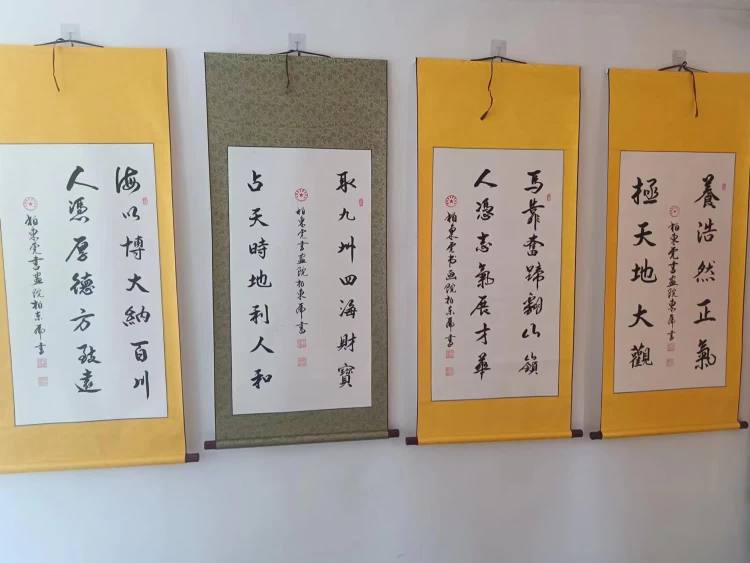 養浩然正氣
極天地大觀
柏東堂書畫院東書
馬靠奮蹄翻山嶺
人憑志氣展才華
柏東堂书画院柏东書
取九州四海財寶
占天時地利人和
柏東堂書畫院柏東書
海以博大納百川
人憑厚德方致遠
柏東堂書畫院柏东書